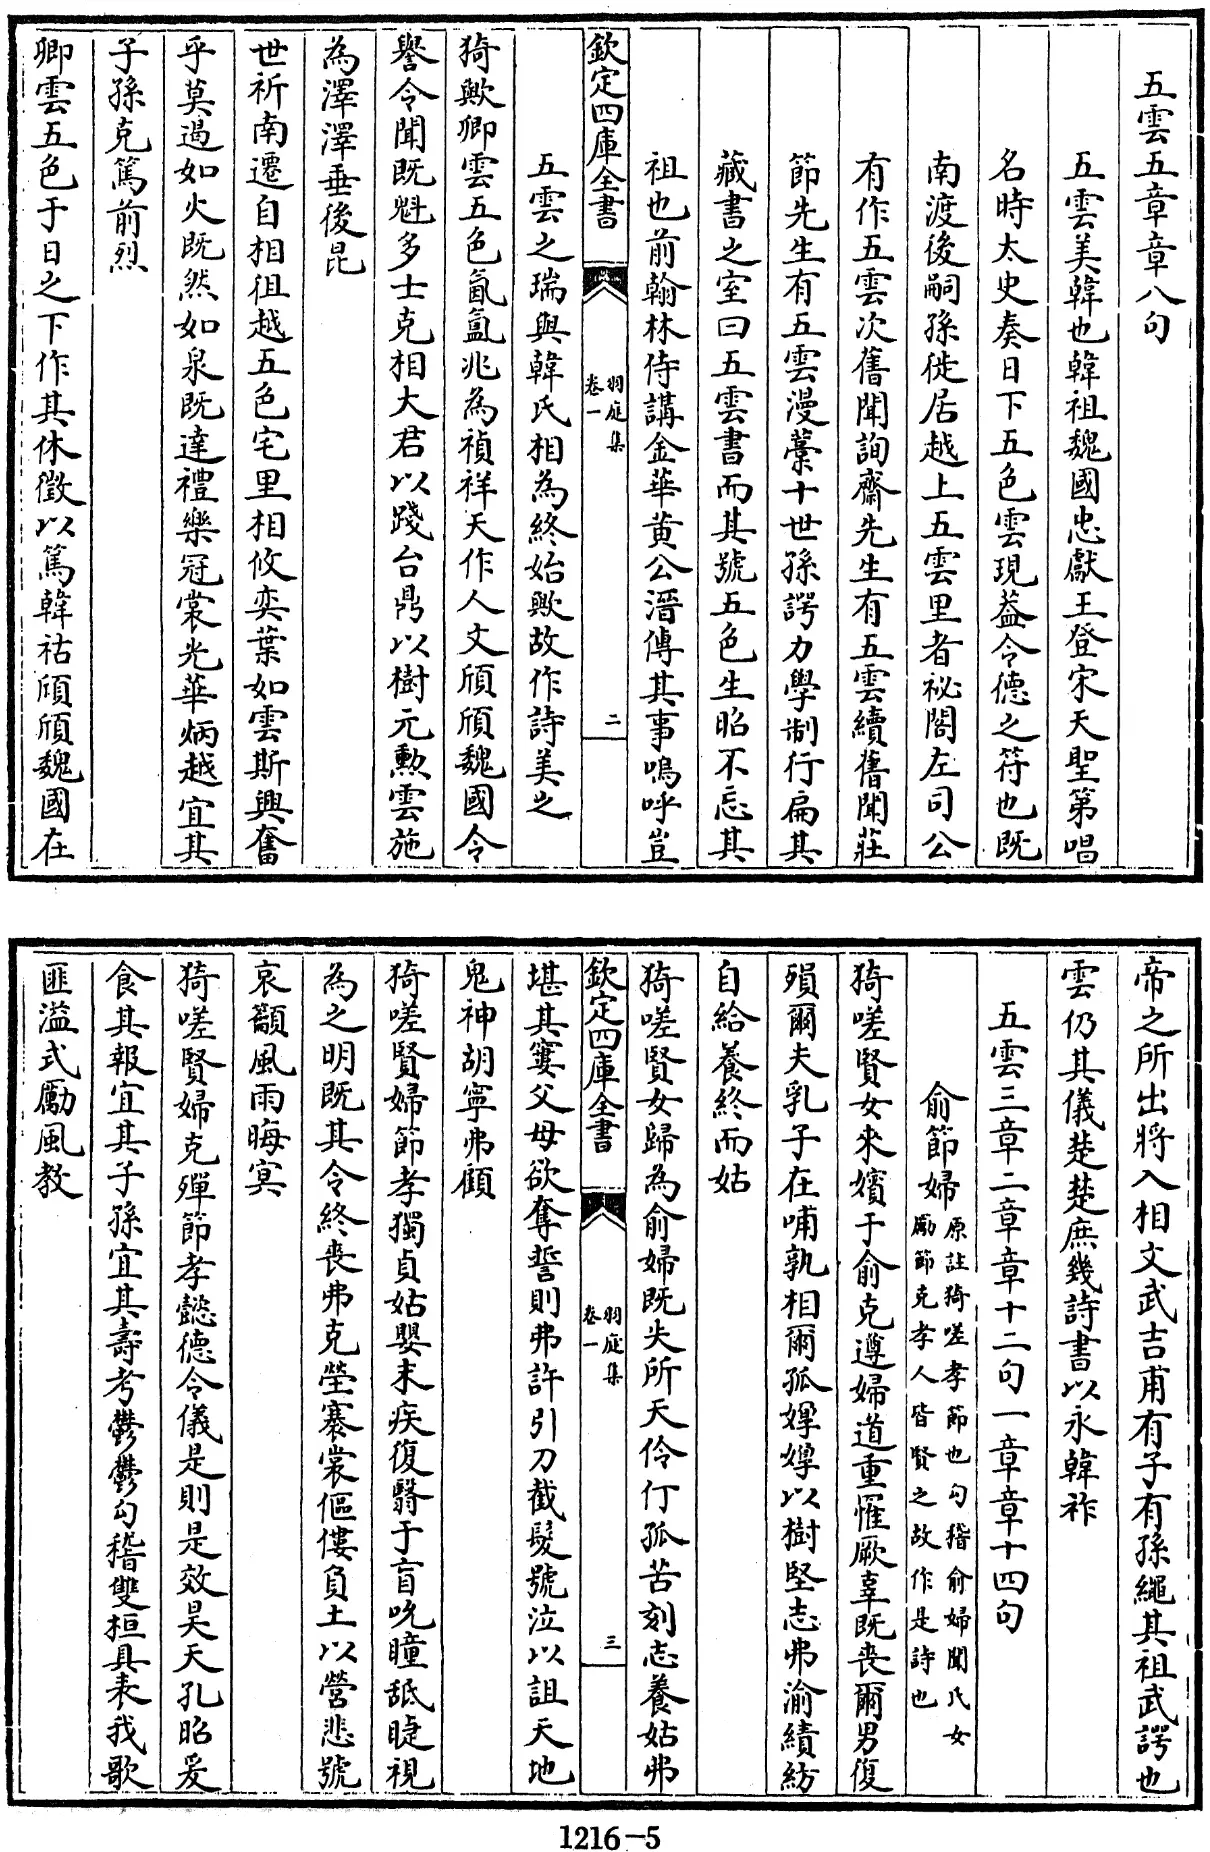 五雲五章章八句
五雲美韓也韓祖魏國忠獻王登宋天聖第唱
名時太史奏日下五色雲現葢令德之符也既
南渡後嗣孫徙居越上五雲里者祕閣左司公
有作五雲次舊聞詢齋先生有五雲續舊聞莊
節先生有五雲漫藁十世孫諤力學制行扁其
藏書之室曰五雲書而其號五色生昭不忘其
祖也前翰林侍講金華黄公溍傳其事嗚呼豈
欽定四庫全書
羽庭集
卷一
二
五雲之瑞與韓氏相為終始歟故作詩美之
猗歟卿雲五色氤氲兆為禎祥天作人文頎頎魏國令
譽令聞既魁多士克相大君以踐台鼎以樹元勲雲施
為澤澤垂後昆
世祈南遷自相徂越五色宅里相攸奕葉如雲斯興奮
乎莫遏如火既然如泉既達禮樂冠裳光華炳越宜其
子孫克篤前烈
卿雲五色于日之下作其休徵以篤韓祜頎頎魏國在
帝之所出將入相文武吉甫有子有孫繩其祖武諤也
雲仍其儀楚楚庶幾詩書以永韓祚
五雲三章二章章十二句一章章十四句
俞節婦
原註猗嗟孝節也勾稽俞婦聞氏女
勵節克孝人皆賢之故作是詩也
猗嗟賢女來嬪于俞克遵婦道重罹厥辜既喪爾男復
殞爾夫乳子在哺孰相爾孤嬕嬕以樹堅志弗渝績紡
自給養終而姑
猗嗟賢女歸為俞婦既失所天伶仃孤苦刻志養姑弗
欽定四庫全書
羽庭集
卷一
三
堪其窶父母欲奪誓則弗許引刀截髮號泣以詛天地
鬼神胡寧弗顧
猗嗟賢婦節孝獨貞姑嬰末疾復翳于盲吮瞳舐睫視
為之明既其令終喪弗克塋褰裳傴僂負土以營悲號
哀籲風雨晦冥
猗嗟賢婦克殫節孝懿德令儀是則是效昊天孔昭爰
食其報宜其子孫宜其壽考鬱鬱勾稽雙桓具表我歌
匪溢式勵風教
1216-5